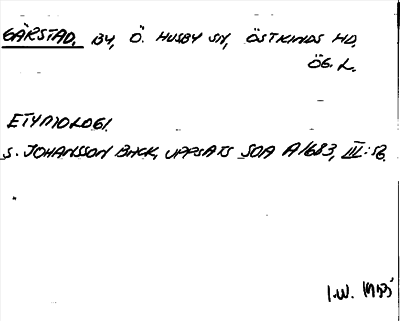 GÄRSTAD, BY, Ö. HUSBY SN, ÖSTKINDS HD.
ÖG. L.
ETYMOLOGI.
S. JOHANSSON BACK, UPPSATS SOA A1683, III: 56.
I.W. 1955